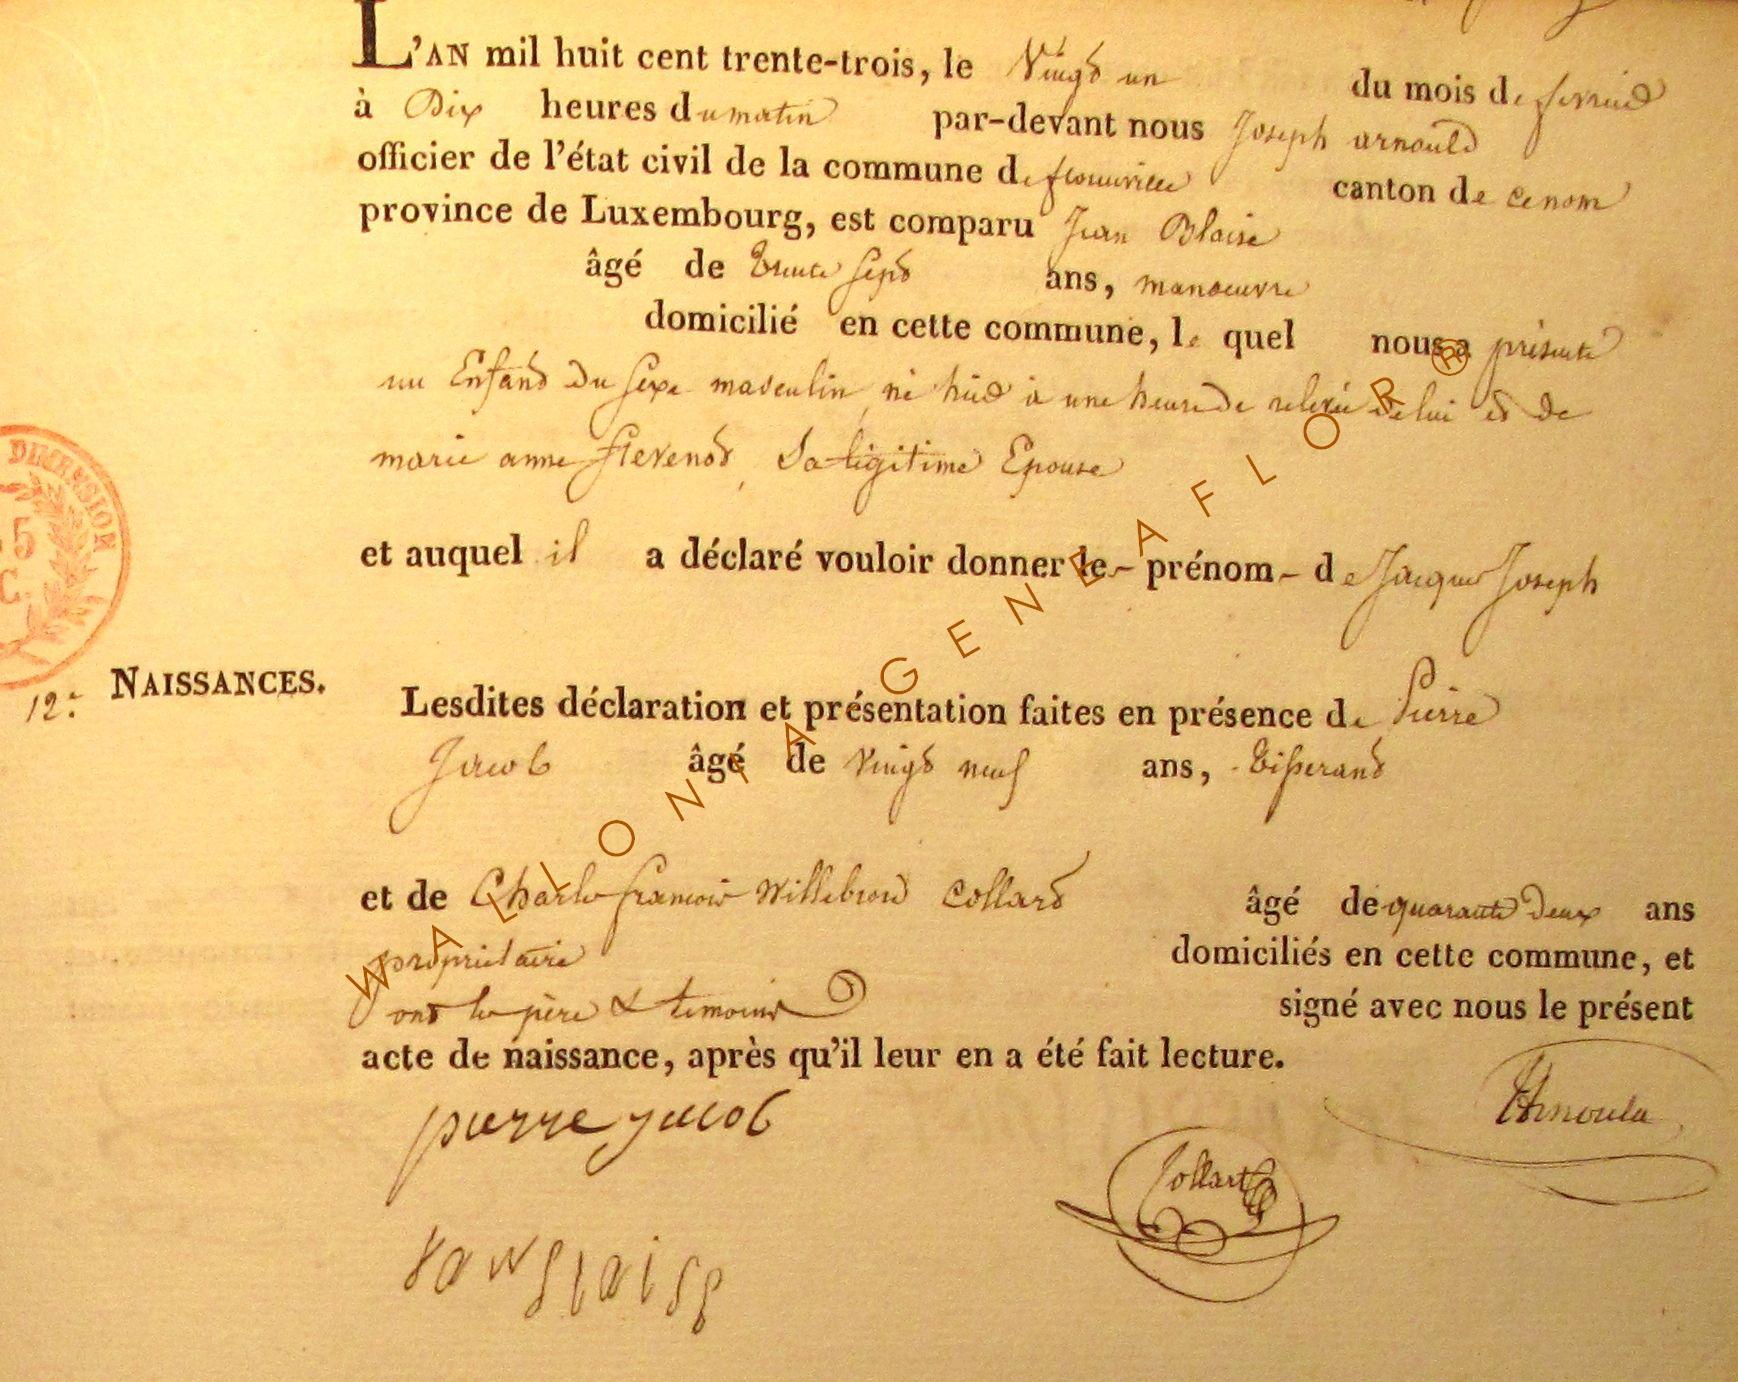 L'AN mil huit cent trente-trois, le Vingt un du mois de fevrier
à Dix heures du matin par-devant nous Joseph arnould
officier de l'état civil de la commune de florenville canton de
province de Luxembourg, est comparu Jean Blaise
âgé de trente sept ans, manoeuvre
domicilié en cette commune, le quel nous a présenté
un Enfant du sexe masculin né hier à une heure de relevée de lui et de
marie anne sa légitime Epouse
et auquel il a déclaré vouloir donner le prénom de Jacques Joseph
12. NAISSANCES.
Lesdites déclaration et présentation faites en présence de Pierre
Jacob âgé de vingt neuf ans, tisserand
et de Charles françois Willebrord Collard âgé de quarante deux ans
propriétaire domiciliés en cette commune, et
ont les père & témoins signé avec nous le présent
acte de naissance, après qu'il leur en a été fait lecture.
pierre jacob
Collart
DIMENSION
5
C.
WALLONIA GENEAFLOR ®